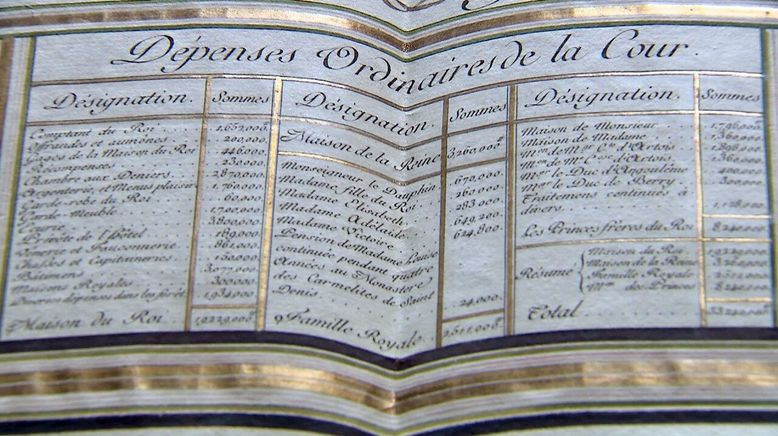 Dépenses Ordinaires de la Cour.
Désignation. Sommes
Comptant du Roi
Offrandes et aumônes 200,000.
Gages de la Maison du Roi
Récompenses 230,000.
Chambre aux Deniers 2,870,000.
Argenterie et Menus plaisirs 1,760,000.
Garde-robe du Roi 60,000.
Garde-Meuble 1,720,000.
Ecurie 3,800,000.
Prévôté de l'Hôtel 189,000.
Vénerie et Fauconnerie
Chasses et Capitaineries
Bâtimens 3,077,000.
Maisons Royales 300,000.
Diverses dépenses dans les forêts 1,934,000.
Maison du Roi 19,229,000.
Désignation. Sommes
Maison de la Reine 3,260,000.
Monseigneur le Dauphin 670,000.
Madame fille du Roi 260,000.
Madame Elisabeth 283,000.
Madame Adélaïde 649,200.
Madame Victoire 624,800.
Pension de Madame Louise
continuée pendant quatre
Années au Monastère
des Carmelites de Saint
Denis 24,000.
Famille Royale 2,511,000.
Désignation. Sommes
Maison de Monsieur
Maison de Madame 1,360,000.
de Mgr Cte d'Artois
de Me Ctesse d'Artois 1,360,000.
Mgr le Duc d'Angoulême 400,000.
Mgr le Duc de Berry 300,000.
Traitemens continués à
divers.
Les Princes frères du Roi 8,240,000.
Résumé Maison du Roi 19,229,000.
Maison de la Reine 3,260,000.
Famille Royale 2,511,000.
Mons des Princes 8,240,000.
Total 33,240,000.